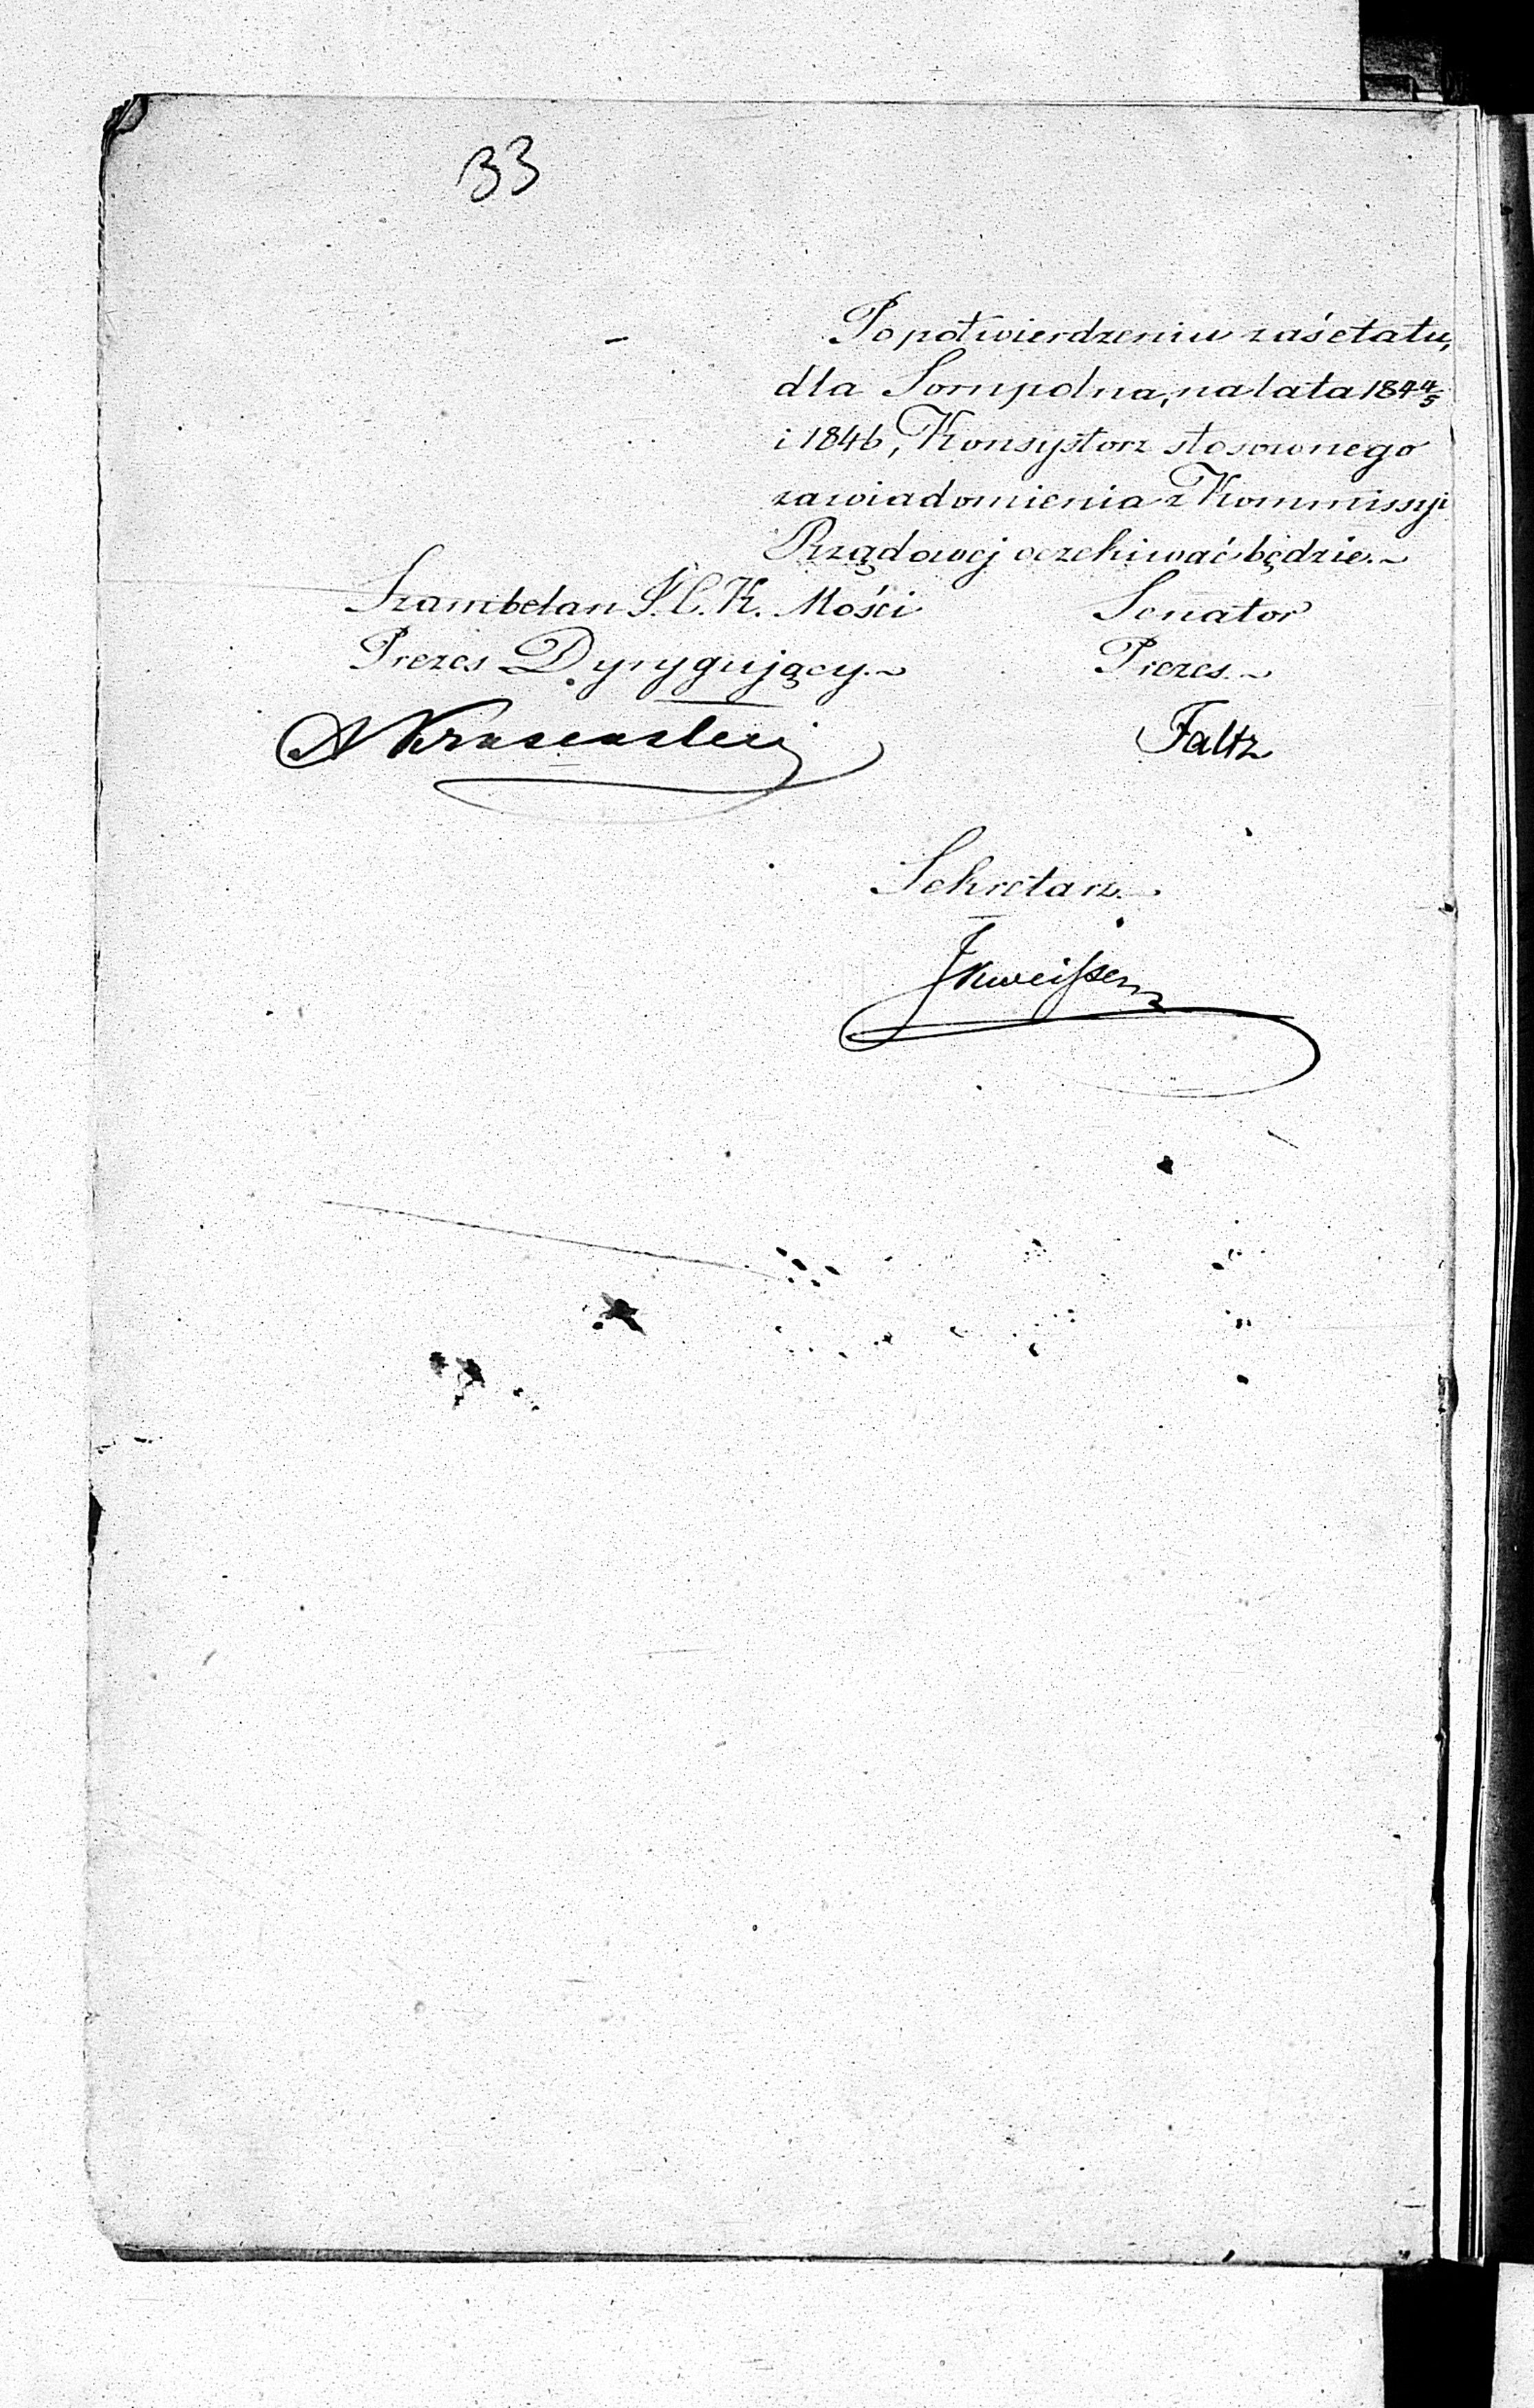 33
Po potwierdzeniu zaś etatu,
dla Sompolna, na lata 184 4/5
i 1846, Konsystorz stosownego
zawiadomienia z Kommissyi
Rządowej oczekiwać będzie.~
Szambelan J. C. K. Mości
Senator
Prezes Dyrygujący.~
Prezes.~
Faltz
Sekretarz.